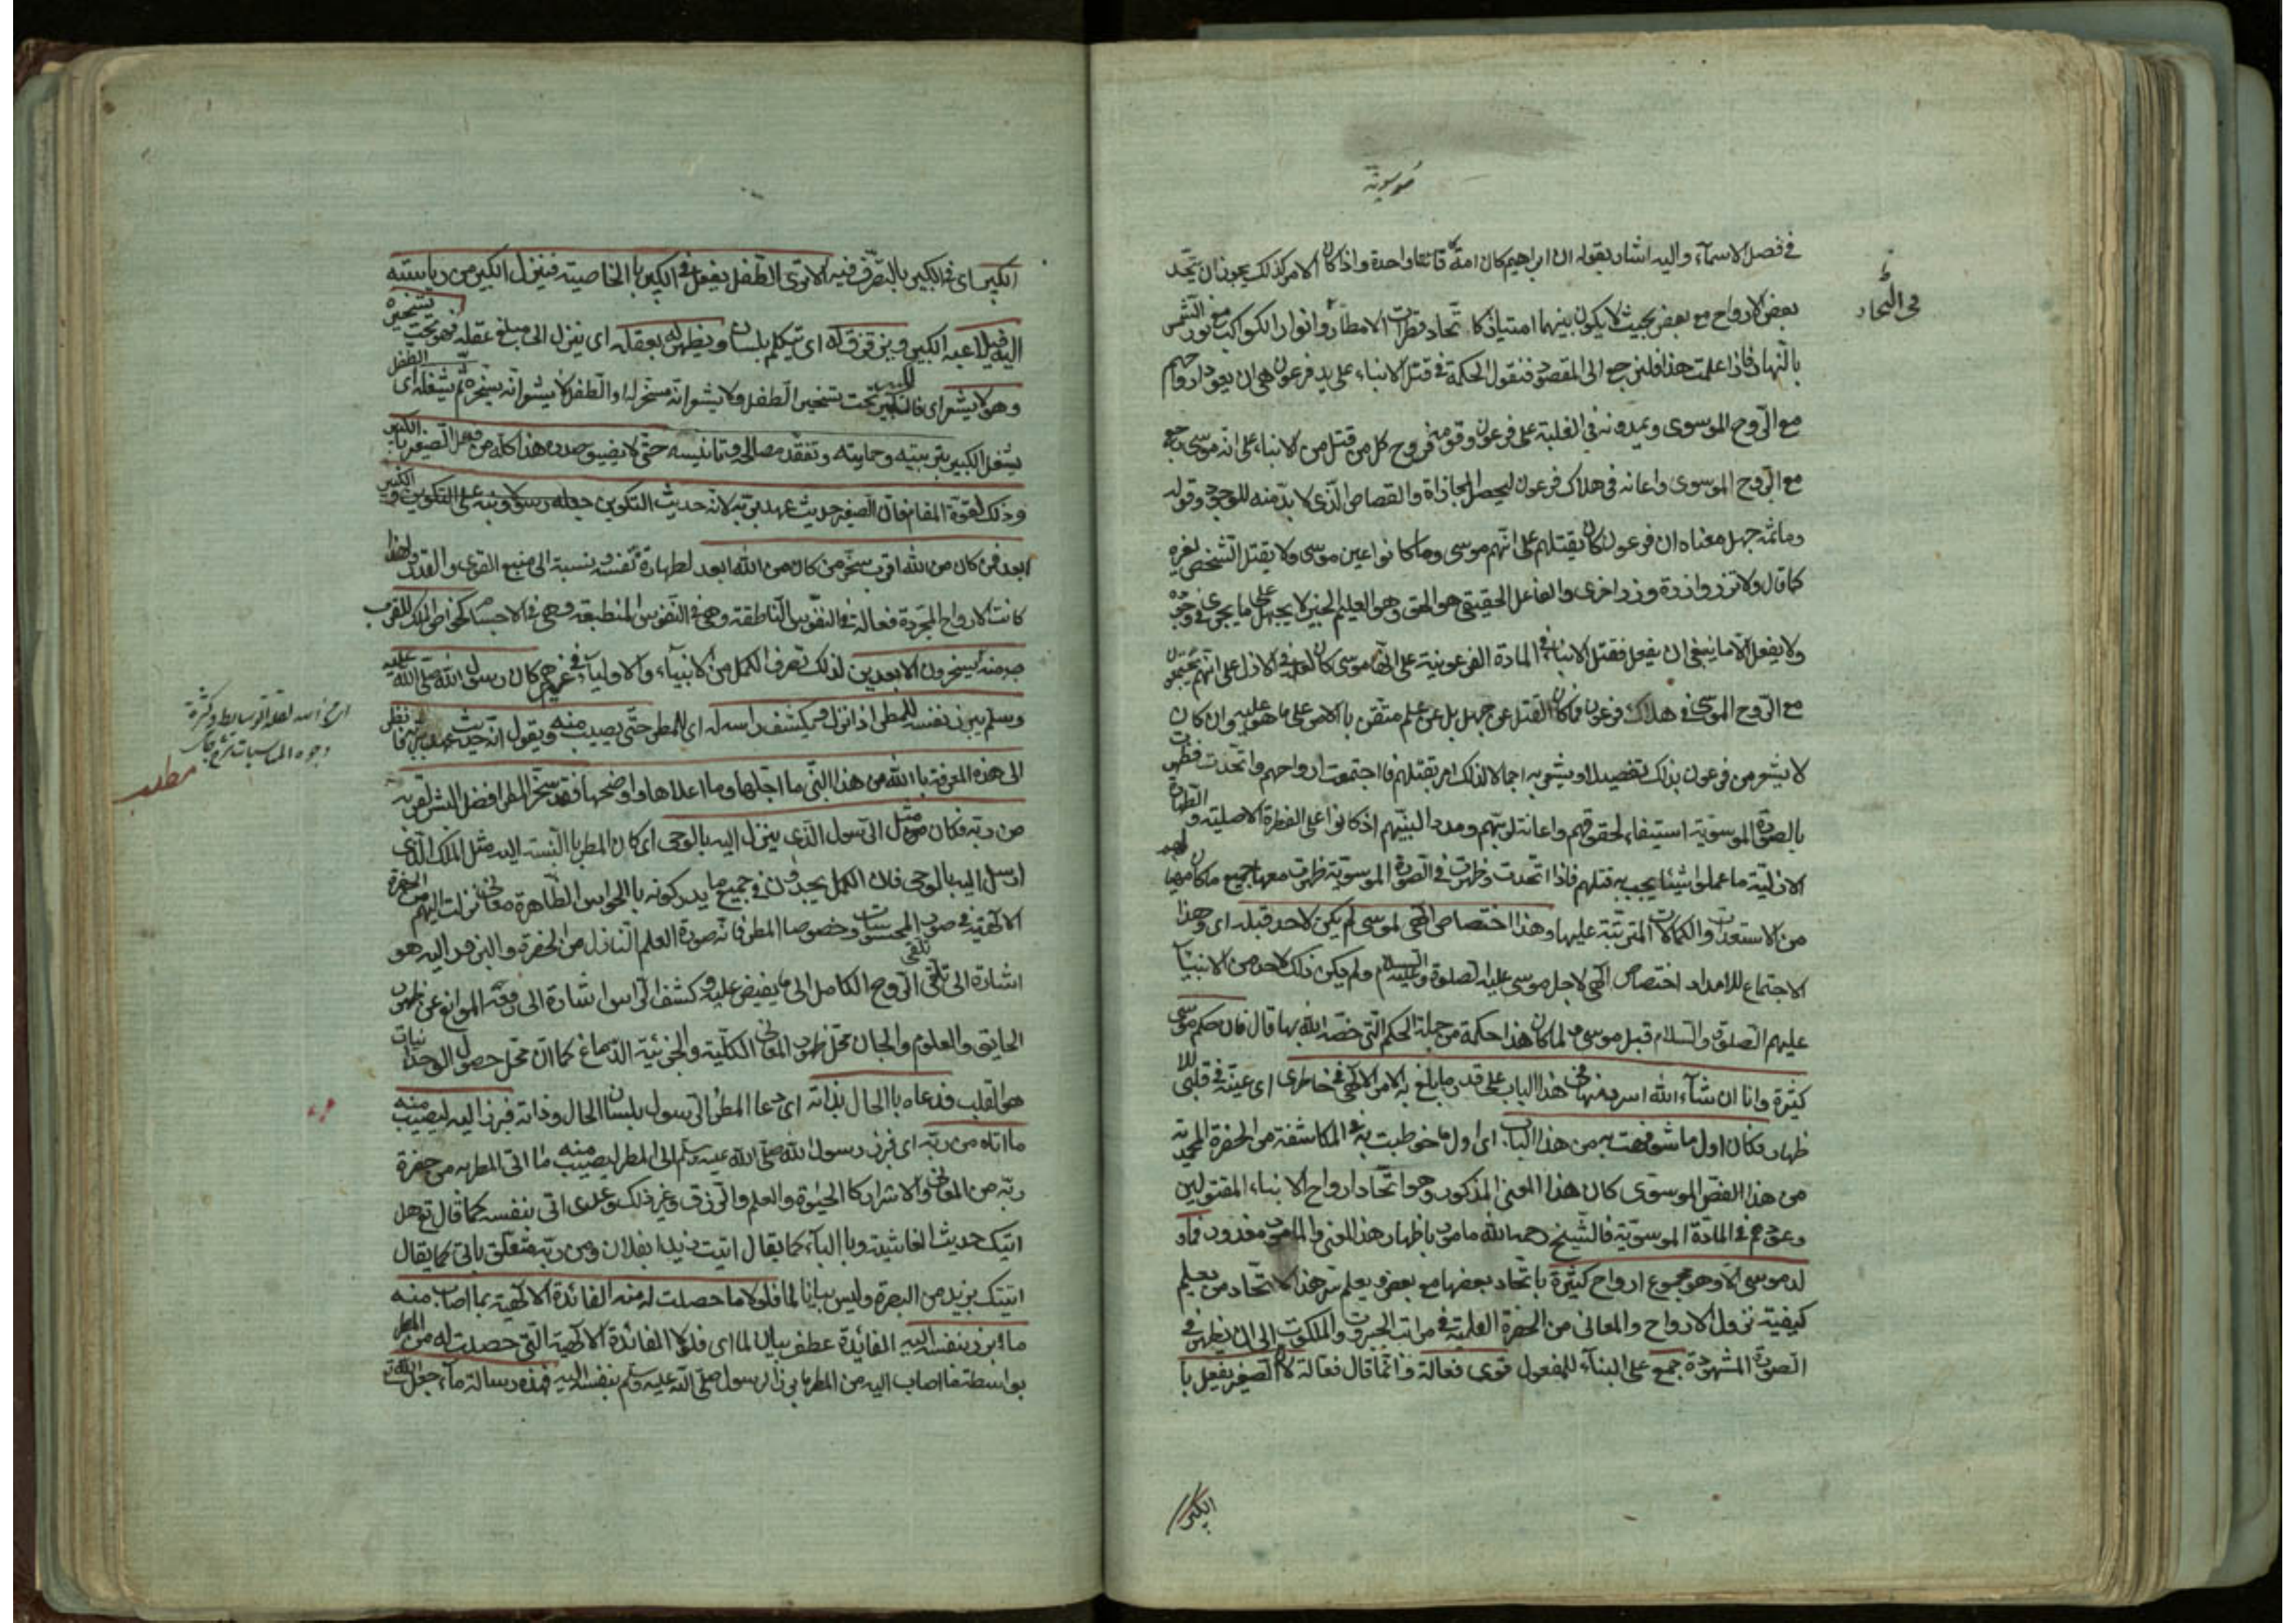 موسوية
في فصل الاسماء واليه اشار بقوله ان ابراهيم كان امة قانتا واحدة واذا كان الامر كذلك يجوز ان يتحد
في اتحاد
بعض الارواح مع بعض بحيث لا يكون بينهما امتياز كاتحاد قطرات الامطار وانوار الكواكب مع نور الشمس
بالنهار فاذا علمت هذا فلنرجع الى المقصود فنقول الحكمة في قتل الابناء على يد فرعون هى ان يعود ارواحهم
مع الروح الموسوى ويمدونه في الغلبة على فرعون وقومه فروح كل من قتل من الابناء على انه موسى رجع
مع الروح الموسوى واعانه في هلاك فرعون ليحصل المجازاة والقصاص الذى لا بد منه للوجود وقوله
وما ثمه جهل معناه ان فرعون كان يقتلهم على انهم موسى وما كانوا عين موسى ولا يقتل الشخص لغيره
كما قال ولا تزر وازرة وزر اخرى والفاعل الحقيقى هو الحق وهو العليم الخبير لا يجهل على ما يجرى في وجوده
ولا يفعل الا ما ينبغى ان يفعل فقتل الابناء في المادة الفرعونية على انها موسى كان لعلمه في الازل على انهم يجتمعون
مع الروح الموسوى في هلاك فرعون فما كان القتل عن جهل بل عن علم متقن بالامر على ما هو عليه وان كان
لا يشعر من فرعون بذلك تفصيلا او يشعر به اجمالا لذلك امر بقتلهم فاجتمعت ارواحهم واتحدت فظهرت
بالصورة الموسوية استيفاء لحقوقهم واعانة لربهم ومددا لنبيهم اذ كانوا على الفطرة الاصلية والطهارة
الازلية ما عملوا شيئا يجب به قتلهم فاذا اتحدت وظهرت في الصورة الموسوية ظهرت معها جميع ما كان مهيا لهم
من الاستعدادات والكمالات المترتبة عليها وهذا اختصاص الهى لموسى لم يكن لاحد قبله اى وهذا
الاجتماع للامداد اختصاص الهى لاجل موسى عليه الصلوة والسلام ولم يكن ذلك لاحد من الانبياء
عليهم الصلوة والسلام قبل موسى ولما كان هذا حكمة من جملة الحكم التى خصه الله بها قال فان حكم موسى
كثيرة وانا ان شاء الله اسرد منها في هذا الباب على قدر ما بلغ به الامر الالهى في خاطرى اى عينه في قلبى للا
ظهار فكان اول ما شوفهت به من هذا الباب اى اول ما خوطبت به في المكاشفة من الحضرة المحمدية
من هذا الفص الموسوى كان هذا المعنى المذكور وهو اتحاد ارواح الانبياء المقتولين
وعودهم في المادة الموسوية فالشيخ رحمه الله مامور باظهار هذا المعنى والمامور معذور فما و
لد موسى الا وهو مجموع ارواح كثيرة باتحاد بعضها مع بعض يعلم سر هذا الاتحاد من يعلم
كيفية نزول الارواح والمعانى من الحضرة العلمية في مراتب الجبروت والملكوت الى ان يظهر في
الصورة المشهودة جمع على البناء للمفعول قوى فعالة وانما قال فعالة لان الصغير يفعل با
الكبير
الكبير اى في الكبير بالتصرف فيه الا ترى الطفل يفعل في الكبير با الخاصية فينزل الكبير من رياسته
اليه فيلاعبه الكبير ويزقزق له اى يتكلم بلسانه ويظهر له بعقله اى ينزل الى مبلغ عقله فهو تحت تسخيره
وهو لا يشعر اى فالكبير تحت تسخير الطفل ولا يشعر انه مسخر له او الطفل لا يشعر انه يسخره ثم يشغله اى الطفل
يشغل الكبير بتربيته وحمايته وتفقد مصالحه وتانيسه حتى لا يضيق صدره هذا كله من فعل الصغير بالكبير
وذلك لقوة المقام فان الصغير حديث عهد بربه لانه حديث التكوين جعله رسولا ونبه على التكوين والكبير
ابعد فمن كان من الله اقرب سخر من كان من الله ابعد لطهارة نفسه ونسبة الى منبع القوى والقدر ولهذا
كانت الارواح المجردة فعالة في النفوس الناطقة وهى في النفوس المنطبعة وهى في الاجسام كخواص الملك للقرب
منه يسخرون الابعدين لذلك تصرف الكمل من الانبياء والاولياء في غيرهم كان رسول الله صلى الله عليه
وسلم يبرز بنفسه للمطر اذا نزل ويكشف راسه له اى للمطر حتى يصيب منه ويقول انه حديث عهد بربه فانظر
ارجح اسد لقلة الوسايط وكثرة
وجوه المناسبات
مطلب
الى هذه المعرفة بالله من هذا النبى ما اجلها وما اعلاها واوضحها فقد سخر المطر افضل البشر لقربه
من ربه فكان مثل الرسول الذى ينزل اليه بالوحى اى كان المطر بالنسبة اليه مثل الملك الذى
ارسل اليه بالوحى فان الكمل يجدون في جميع ما يدركونه بالحواس الظاهرة معانى نزلت اليهم من الحضرة
الالهية في صور المحسوسات وخصوصا المطر فانه صورة العلم النازل من الحضرة والبروز اليه هو
اشارة الى تلقى الروح الكامل الى ما يفيض عليه وكشف الراس اشارة الى رفع الموانع عن ظهور
الحقايق والعلوم والجان محل ظهور المعانى الكلية والجزئية الدماغ كما ان محل حصول الوجدانيات
هو القلب فدعاه بالحال بذاته اى دعا المطر الرسول بلسان الحال وذاته فبرز اليه ليصيب منه
ما اتاه من ربه اى فبرز رسول الله صلى الله عليه وسلم الى المطر ليصيب منه ما اتى المطر به من حضرة
ربه من المعانى والاسرار كا الحيوة والعلم والرزق وغير ذلك وعدى اتى بنفسه كما قال تع هل
اتيك حديث الغاشية وبالباء كما يقال اتيت زيدا بفلان ومن ربه متعلق باتى كما يقال
اتيتك بزيد من البصرة وليس بيانا لما فلولا ما حصلت له منه الفائدة الالهية بما اصاب منه
ما برز بنفسه اليه الفائدة عطف بيان لما اى فلولا الفائدة الالهية التى حصلت له من المطر
بواسطة ما اصاب اليه من المطر ما برز الرسول صلى الله عليه وسلم بنفسه اليه فهذه رسالة ماء جعل الله